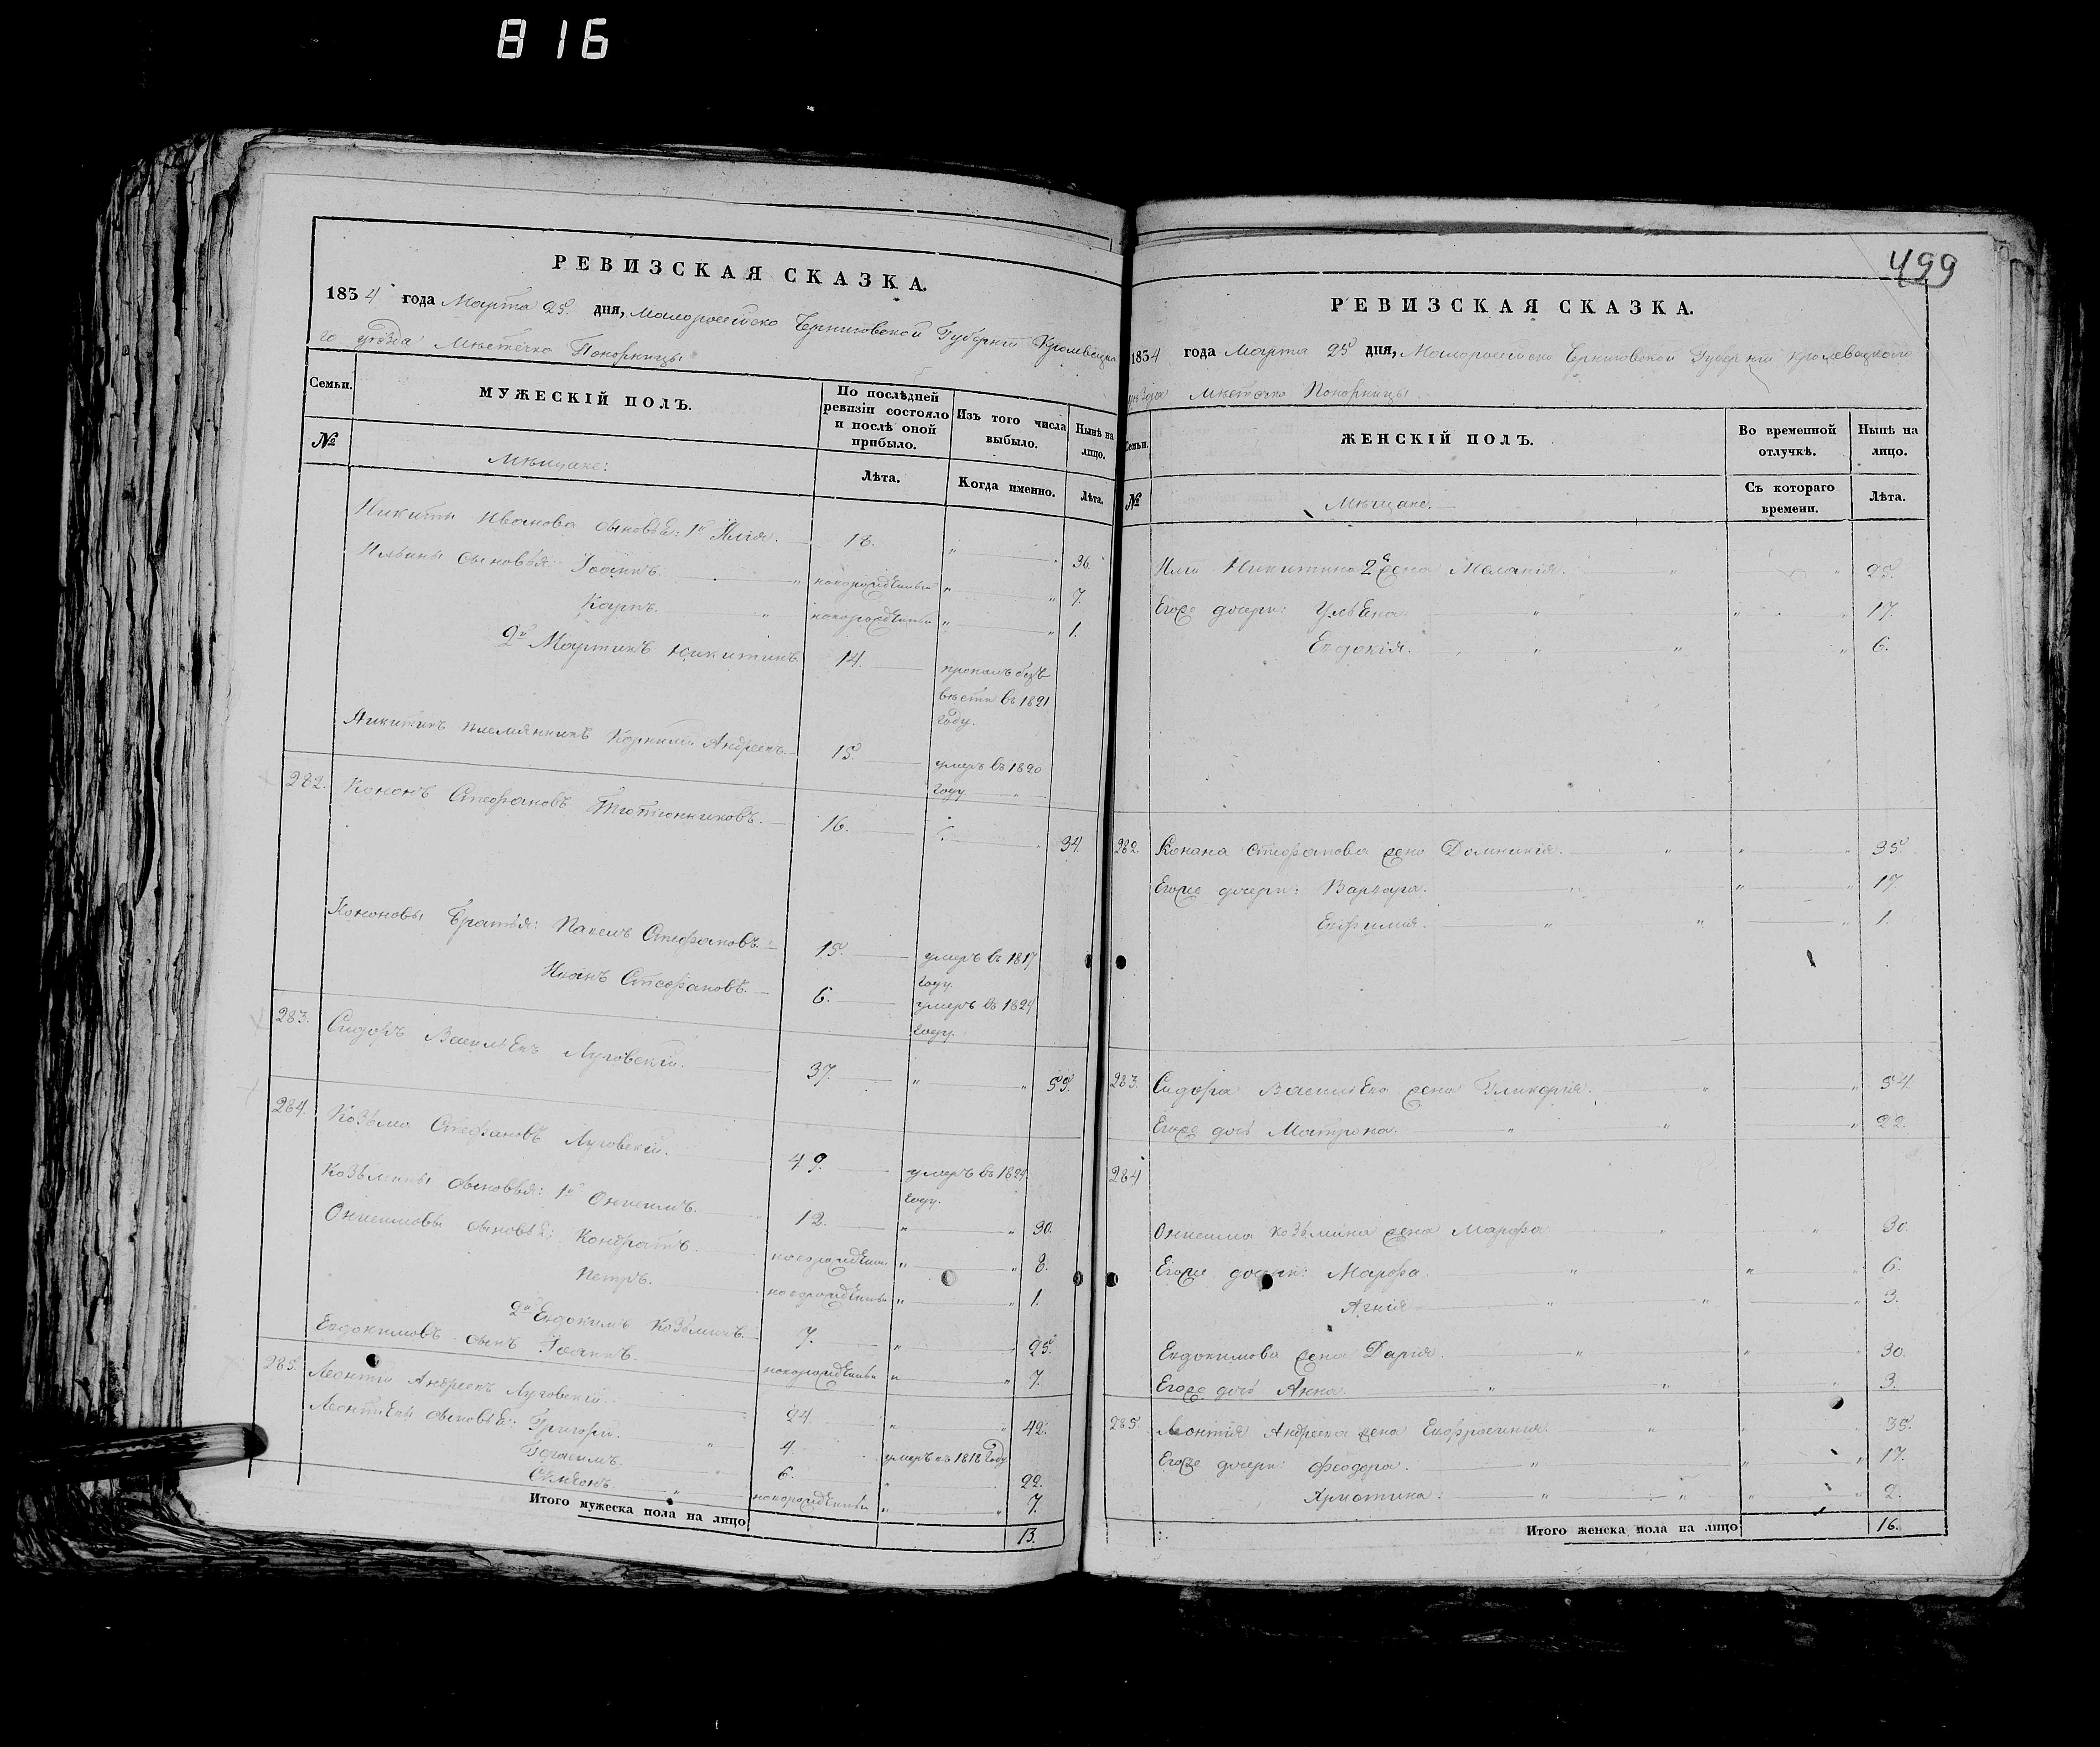 816
РЕВИЗСКАЯ СКАЗКА.
1834 года Марта 25 дня, Малоросійско Черниговской Губерніи Кролевецка
го уѣзда Мѣстечка Понорницы
Семьи.
МУЖЕСКІЙ ПОЛЪ.
По послѣдней ревизіи состояло и послѣ оной прибыло.
Изъ того числа выбыло.
Нынѣ на лицо.
№
Мѣщане:
Лѣта.
Когда именно.
Лѣта.
Никиты Иванова сыновья: 1й Илія. 18. " 36.
Ильины сыновья Іоаннъ. " новорожденный " " 7.
Карпъ. " новорожденный " " 1.
2й Мартинъ Никитинъ. 14. пропалъ безъ
вѣсти въ 1821
году.
Никитинъ племянникъ Корнилій Андреевъ. 15. умеръ въ 1820
году
282. Кононъ Стефановъ Тютюнниковъ. 16. " 34.
Кононовы братья: Павелъ Стефановъ. 15. умеръ въ 1817
году.
Иванъ Стефановъ. 6. умеръ въ 1824
году.
283. Сидоръ Васильевъ Луговскій. 37. " " 55.
284. Козьма Стефановъ Луговскій. 49. умеръ въ 1824
году.
Козьмины сыновья: 1й Онисимъ. 12. " " 30.
Онисимовы сыновья: Кондратъ. новорожденный " " 8.
Петръ. новорожденный " " 1.
2й Евдокимъ Козьминъ. 7. " " 25.
Евдокимовъ сынъ Іоаннъ. новорожденный " " 7.
285. Леонтій Андреевъ Луговскій. 24 " " 42.
Леонтіевы сыновья: Григорій. " 4 умеръ въ 1818 году
Герасимъ. " 6. " 22.
Семіонъ " новорожденный " " 7.
Итого мужеска пола на лицо 13.
499
РЕВИЗСКАЯ СКАЗКА.
1834 года Марта 25 дня, Малоросійско Черниговской Губерніи Кролевецкого
уѣзда Мѣстечка Понорницы
Семьи.
ЖЕНСКІЙ ПОЛЪ.
Во временной отлучкѣ.
Нынѣ на лицо.
№
Мѣщане.
Съ котораго времени.
Лѣта.
Иліи Никитина 2я жена Меланія. " " 25.
Егоже дочери: Ульяна. " " " 17.
Евдокія. " " " 6.
282. Конана Стефанова жена Домникія. " " " 35.
Егоже дочери: Варвара. " " " 17
Евфимія. " " " 1.
283. Сидора Васильева жена Гликерія " " 54
Егоже дочь Матрона. " " " 22.
284
Онисима Козьмина жена Марфа " " 30
Егоже дочери: Марфа. " " " 6.
Агнія " " " 3.
Евдокимова жена Дарія. " " " 30.
Егоже дочь Анна. " " " 3.
285. Леонтія Андреева жена Евфросинія. " " " 35.
Егоже дочери: Феодора. " " " 17.
Христина: " " " " 2.
Итого женска пола на лицо 16.